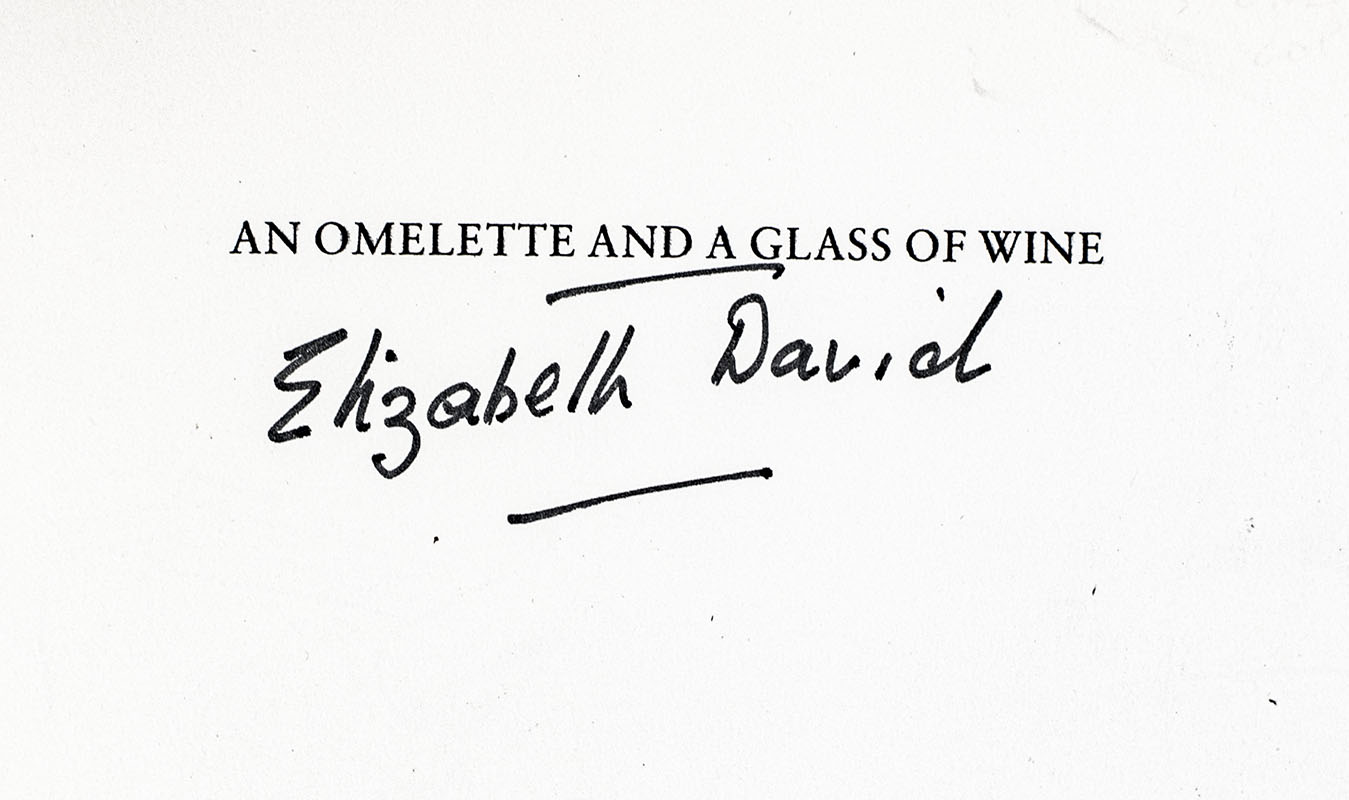 AN OMELETTE AND A GLASS OF WINE
Elizabeth David